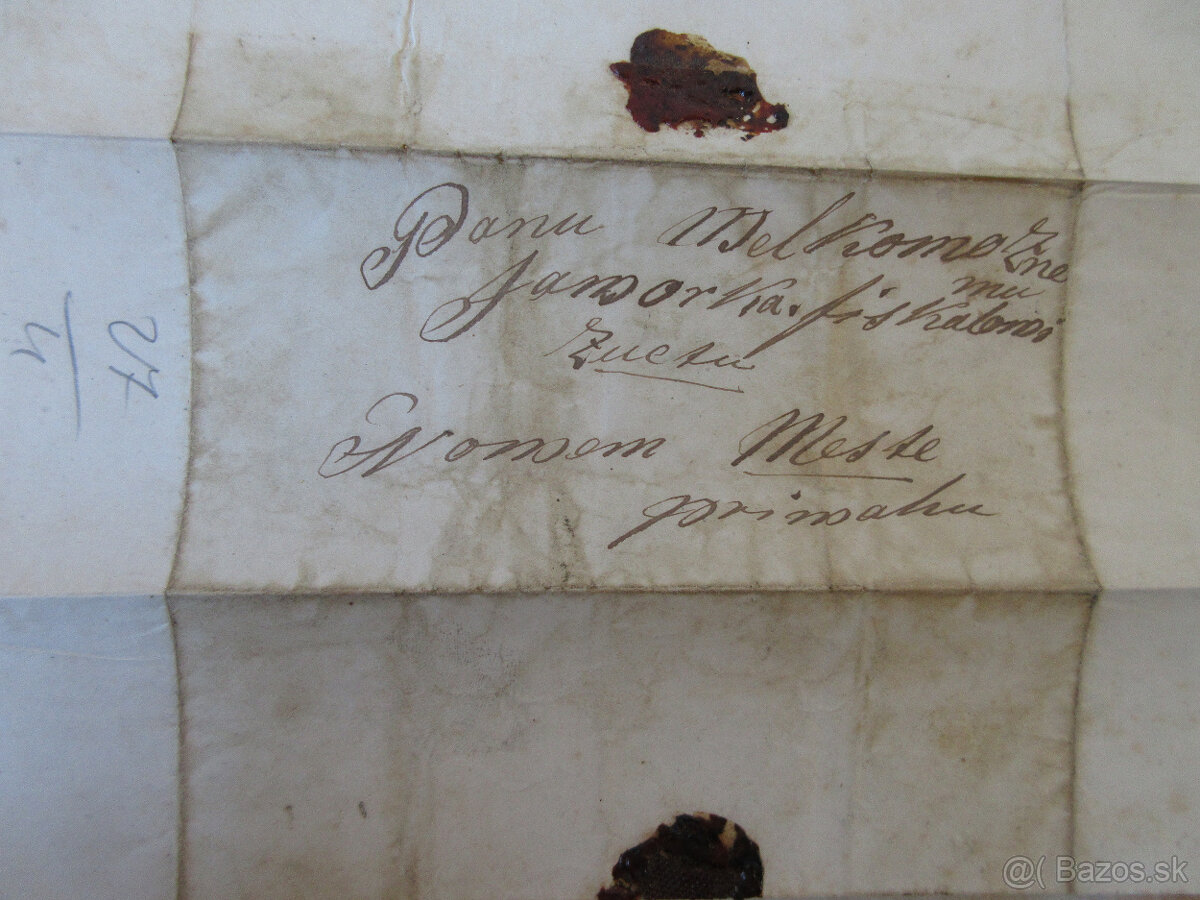 Panu Welkomožne
mu
Jaworka. fiskalowi
Zuctu
Nowem Meste
priwahu
@( Bazos.sk